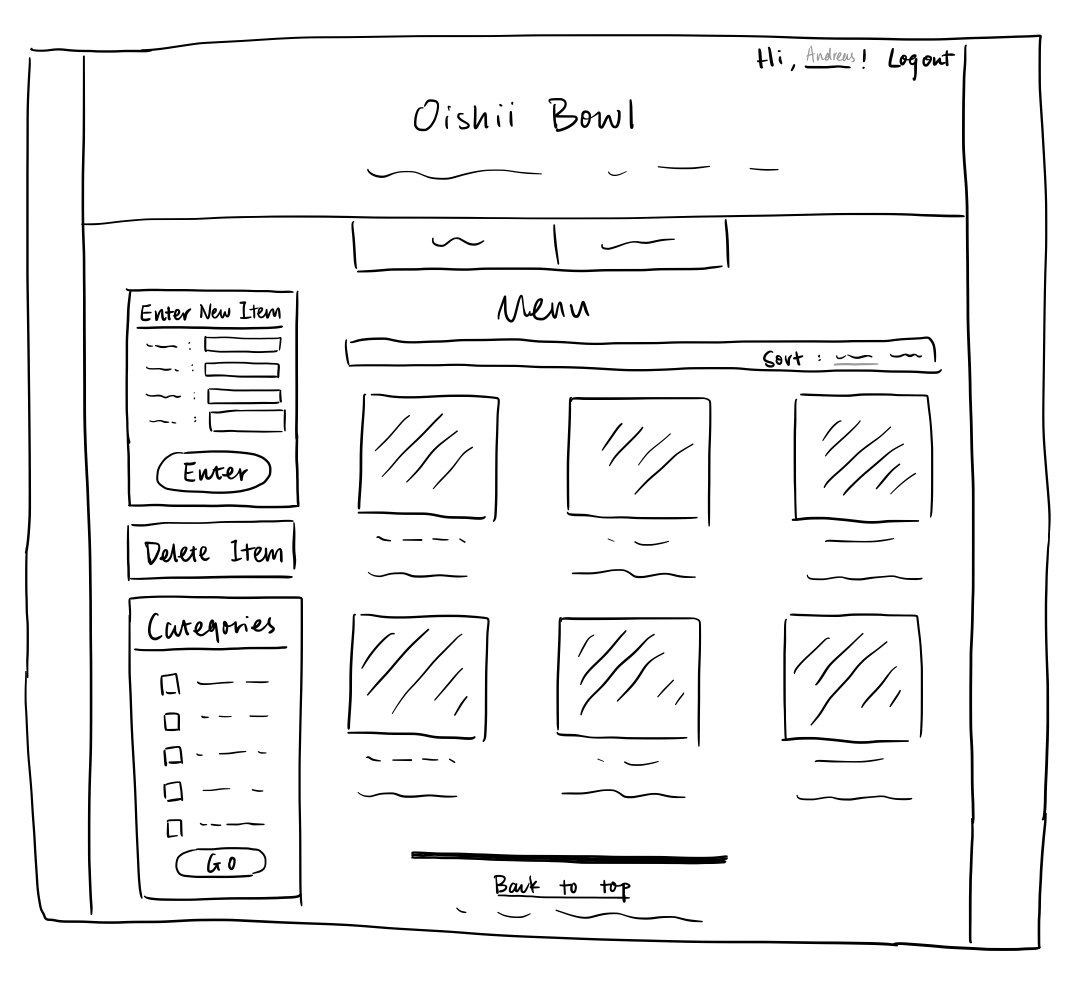 Hi, Andreas! Logout
Oishii Bowl
Menu
Sort :
Enter New Item
Enter
Delete Item
Categories
GO
Back to top